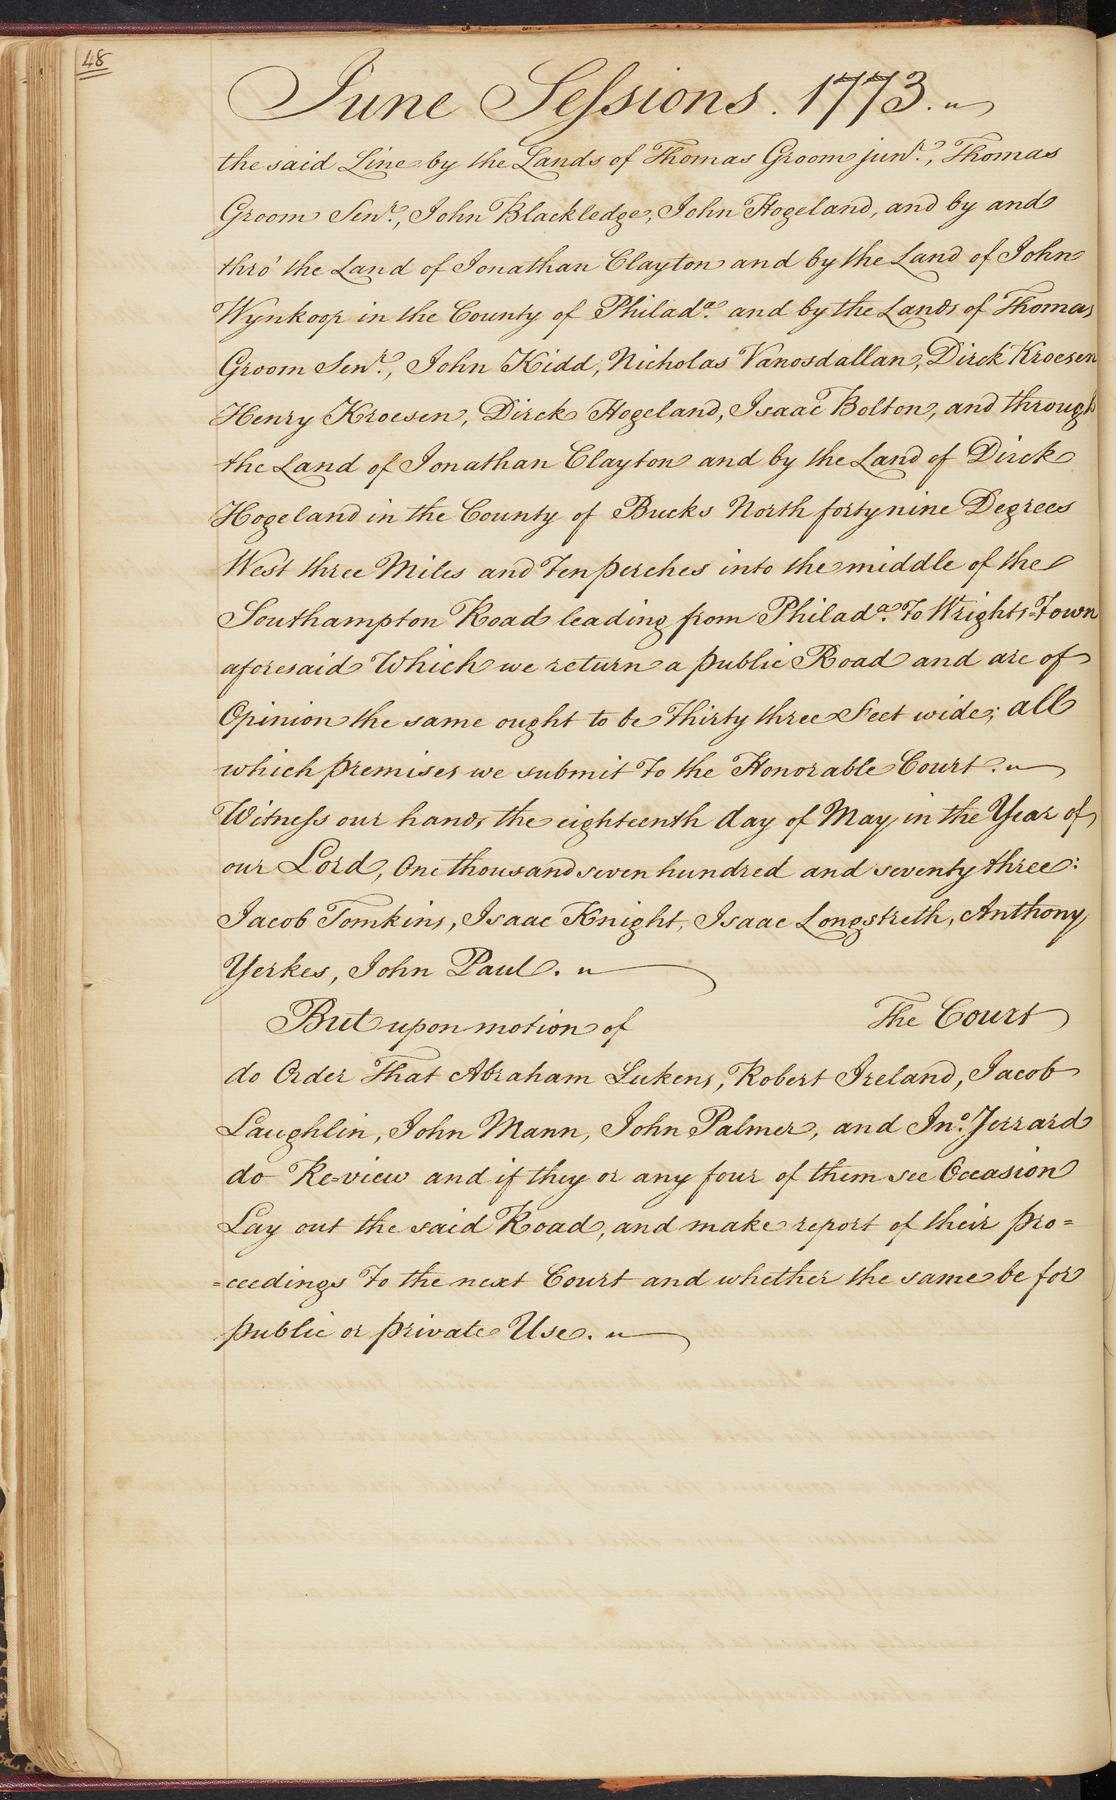 48
June Sessions. 1773.
the said Line by the Lands of Thomas Groom junr., Thomas
Groom Senr., John Blackledge, John Hogeland, and by and
thro' the Land of Jonathan Clayton and by the Land of John
Wynkoop in the County of Philada. and by the Lands of Thomas
Groom Senr., John Kidd, Nicholas Vanosdallan, Dirck Kroesen
Henry Kroesen, Dirck Hogeland, Isaac Bolton, and through
the Land of Jonathan Clayton and by the Land of Dirck
Hogeland in the County of Bucks North forty nine Degrees
West three Miles and Ten perches into the middle of the
Southampton Road leading from Philada. To Wrights=Town
aforesaid Which we return a public Road and are of
Opinion the same ought to be Thirty three Feet wide; all
which premises we submit To the Honorable Court.
Witness our hands the eighteenth day of May in the Year of
our Lord, One thousand seven hundred and seventy three:
Jacob Tomkins, Isaac Knight, Isaac Longstreth, Anthony
Yerkes, John Paul.
But upon motion of The Court
do Order That Abraham Lukens, Robert Ireland, Jacob
Laughlin, John Mann, John Palmer, and Jno. Jerrard
do Re=view and if they or any four of them see Occasion
Lay out the said Road, and make report of their pro=
=ceedings To the next Court and whether the same be for
public or private Use.